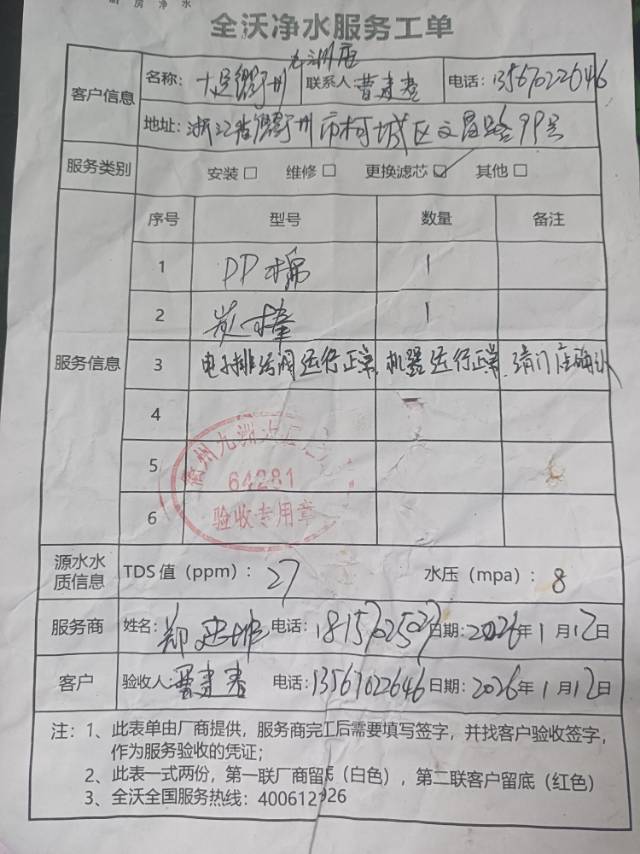 厨房净水
全沃净水服务工单
九洲店
客户信息
名称: 大润发衢州 联系人 曹建春 电话: 13567022646
地址: 浙江省衢州市柯城区文昌路99号
服务类别 安装□ 维修□ 更换滤芯☑ 其他□
服务信息
序号 型号 数量 备注
1 PP棉 1
2 炭棒 1
3 电子排污阀运行正常, 机器运行正常, 请门店确认
4
5
6
衢州九洲
64281
验收专用章
源水水质信息 TDS值(ppm): 27 水压(mpa): 8
服务商 姓名: 郑 电话: 日期: 2026年1月12日
客户 验收人: 曹建春 电话: 13567022646 日期: 2026年1月12日
注: 1、此表单由厂商提供，服务商完工后需要填写签字，并找客户验收签字，
作为服务验收的凭证;
2、此表一式两份，第一联厂商留底(白色)，第二联客户留底(红色)
3、全沃全国服务热线: 400612